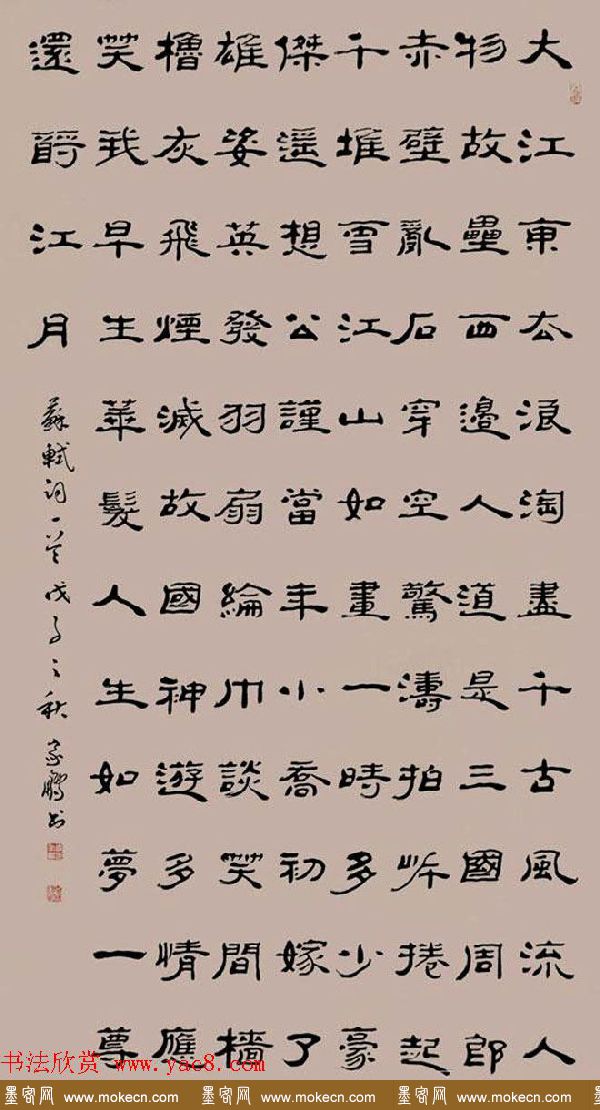 大江東去浪淘盡千古風流人
物故壘西邊人道是三國周郎
赤壁亂石穿空驚濤拍岸捲起
千堆雪江山如畫一時多少豪
傑遥想公謹當年小喬初嫁了
雄姿英發羽扇綸巾談笑間檣
櫓灰飛煙滅故國神遊多情應
笑我早生華髮人生如夢一尊
還酹江月
蘇軾詞一首戊子之秋家鵬书
书法欣赏 www.yac8.com
墨客网 www.mokecn.com 墨客网 www.mokecn.com 墨客网 www.mokecn.com